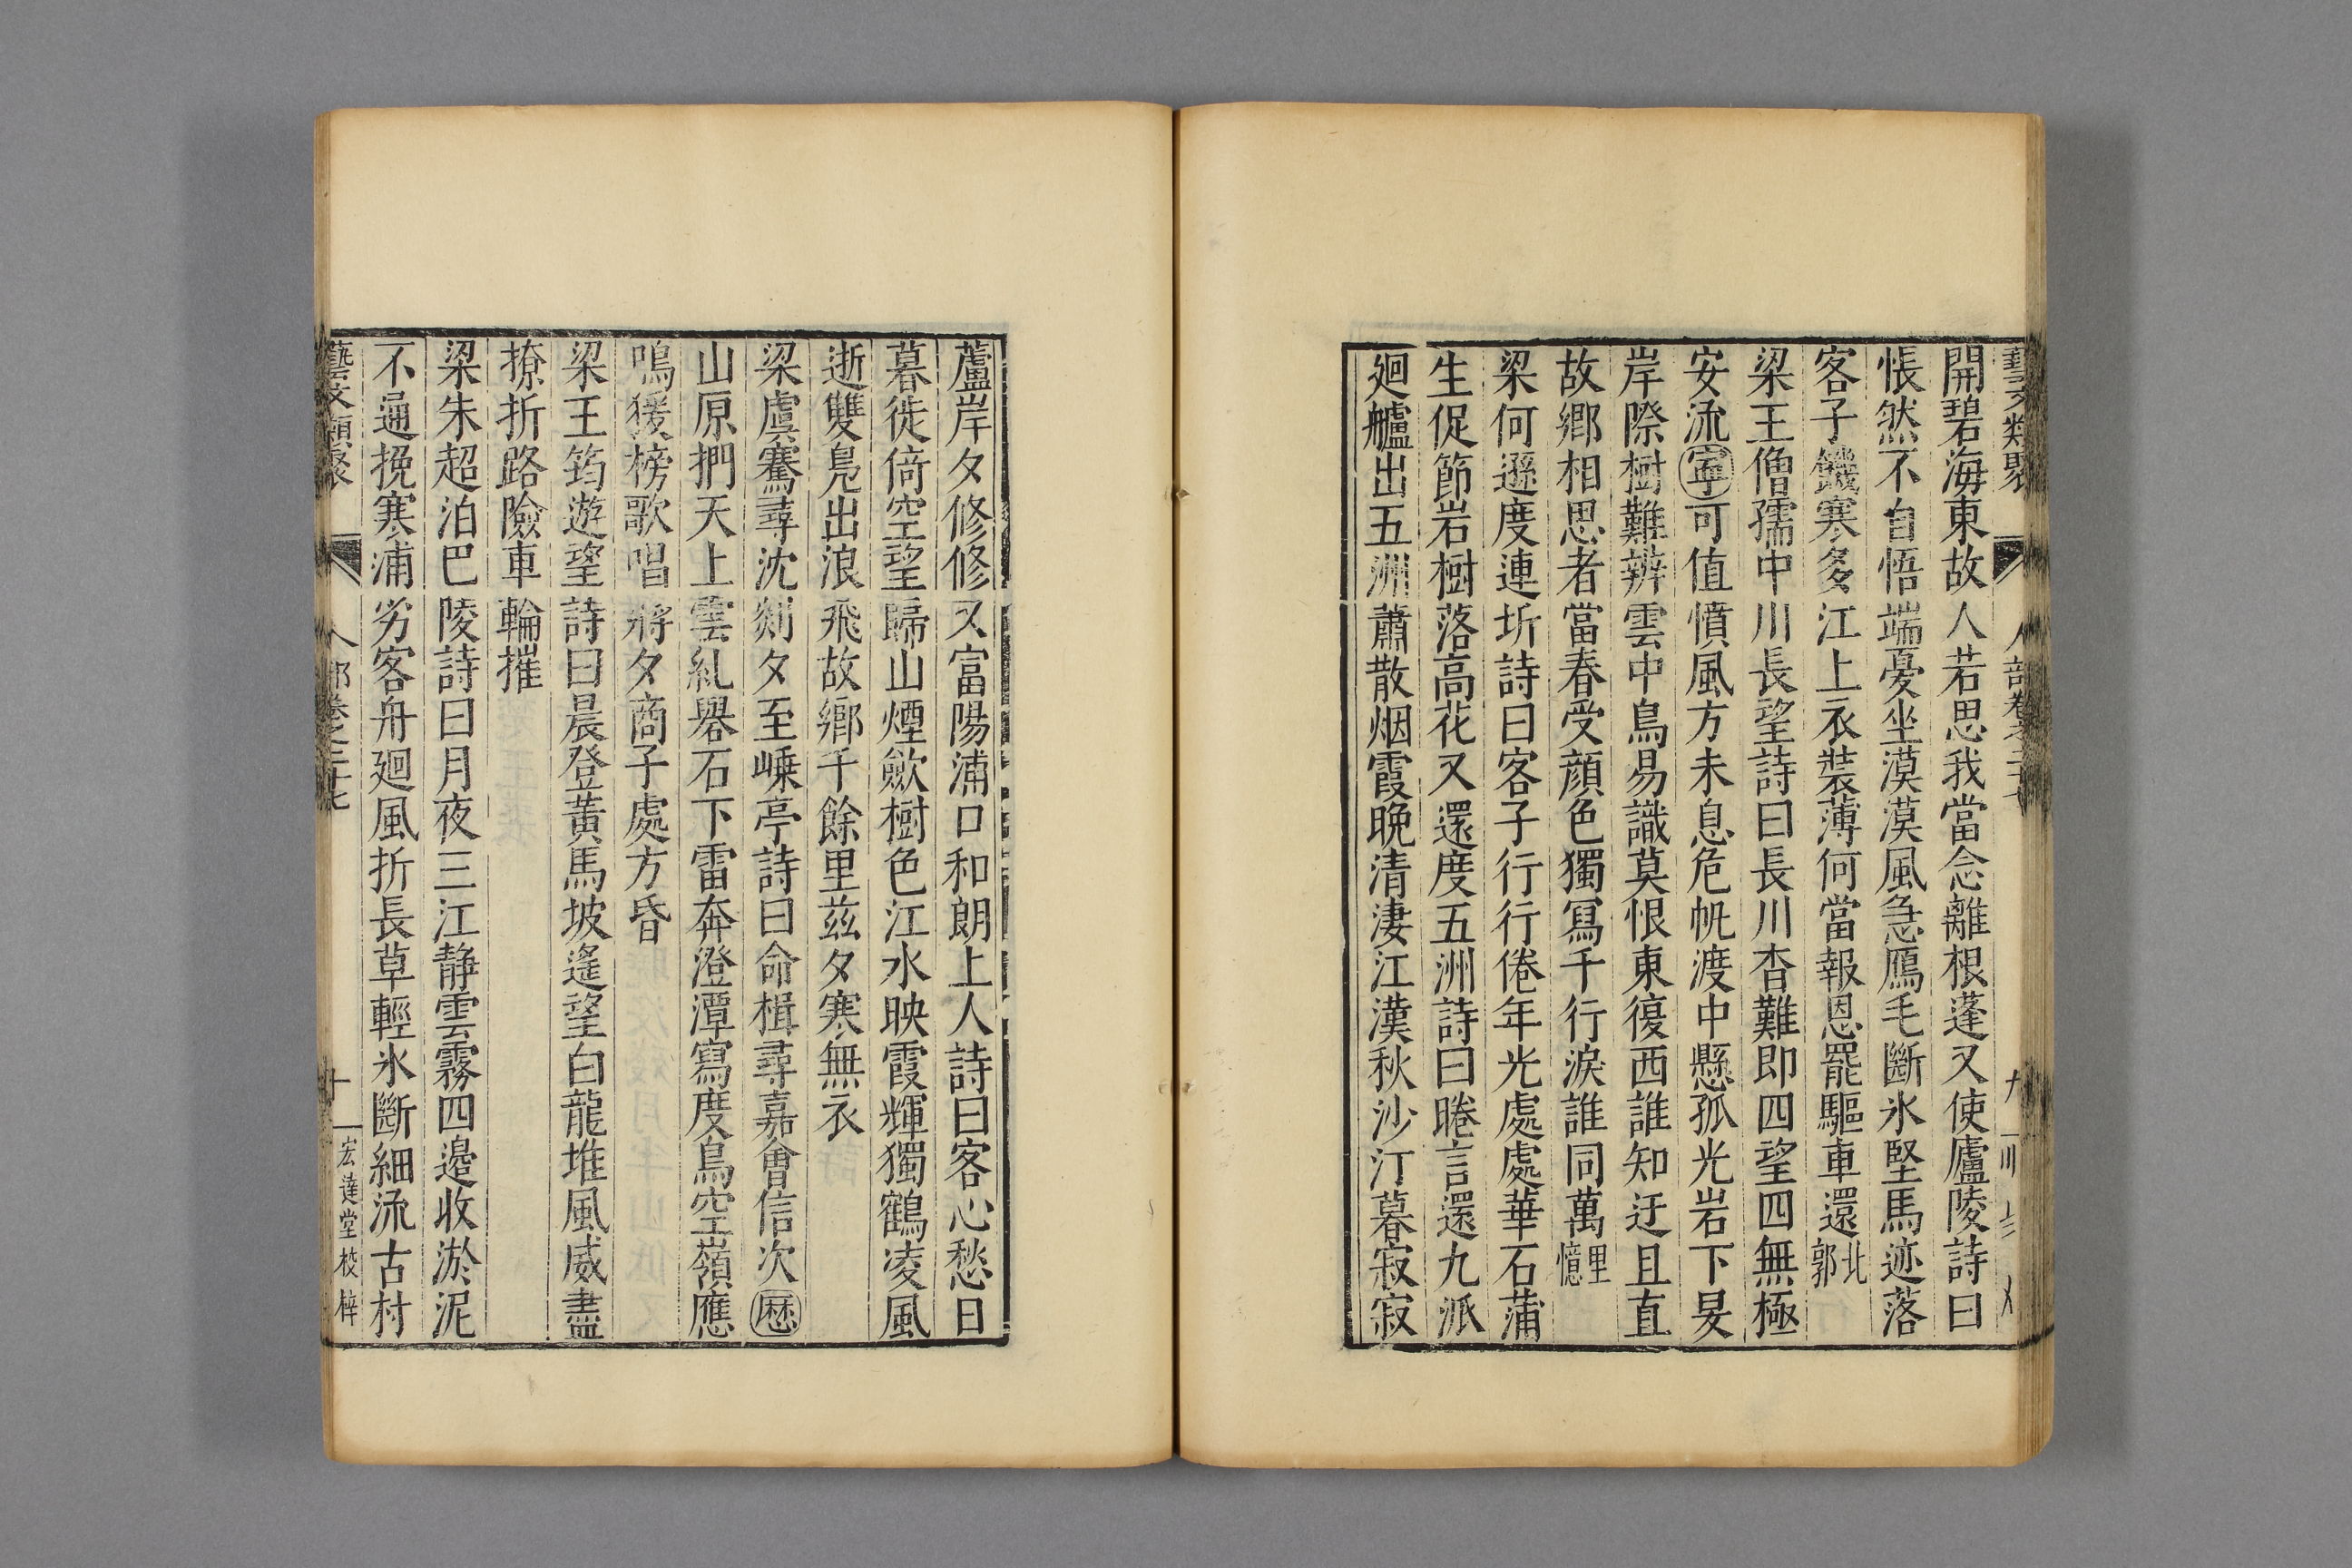 藝文類聚 人部卷之二十七 九
開碧海東故人若思我當念離根蓬又使廬陵詩曰
悵然不自悟端憂坐漠漠風急鴈毛斷氷堅馬迹落
客子饑寒多江上衣裝薄何當報恩罷驅車還北郭
梁王僧孺中川長望詩曰長川杳難即四望四無極
安流寧可值憤風方未息危帆渡中懸孤光岩下昃
岸際樹難辨雲中鳥易識莫恨東復西誰知迂且直
故鄉相思者當春受顔色獨冩千行淚誰同萬里憶
梁何遜度連圻詩曰客子行行倦年光處處華石蒲
生促節岩樹落高花又還度五洲詩曰睠言還九派
廻艫出五洲蕭散烟霞晚清淒江漢秋沙汀暮寂寂
蘆岸夕修修又富陽浦口和朗上人詩曰客心愁日
暮徙倚空望歸山煙歛樹色江水映霞輝獨鶴凌風
逝雙鳧出浪飛故鄉千餘里茲夕寒無衣
梁虞騫尋沈剡夕至嵊亭詩曰命楫尋嘉會信次歷
山原捫天上雲糺礐石下雷奔澄潭寫度鳥空嶺應
鳴猨榜歌唱將夕商子處方昏
梁王筠遊望詩曰晨登黃馬坡遙望白龍堆風威盡
撩折路險車輪摧
梁朱超泊巴陵詩曰月夜三江靜雲霧四邉收淤泥
不通挽寒浦劣客舟廻風折長草輕氷斷細流古村
藝文類聚 人部卷之二十七 十 宏達堂校梓